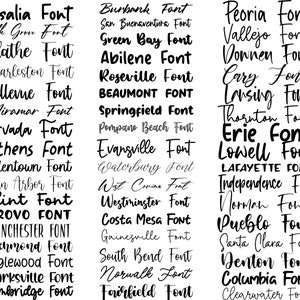 salia Font
Grove Font
aithe Font
harleston Font
llevue Font
iramar Font
rvada Font
thens Font
lentown Font
n Arbor Font
lint Font
ROVO FONT
NCHESTER FONT
chmond Font
glewood Font
arksville Font
mbridge Font
Burbank Font
San Buenaventura Font
Green Bay Font
Abilene Font
Roseville Font
BEAUMONT FONT
Springfield Font
Pompano Beach Font
Evansville Font
Waterbury Font
West Covina Font
Westminster Font
Costa Mesa Font
Gainesville Font
South Bend Font
Norwalk Font
Fairfield Font
Peoria Font
Vallejo Font
Downey Font
Cary Font
Lansing Font
Thornton Font
Erie Font
Lowell Font
LAFAYETTE FONT
Independence Font
Norman Font
Pueblo Font
Santa Clara Font
Denton Font
Columbia Font
Clearwater Font